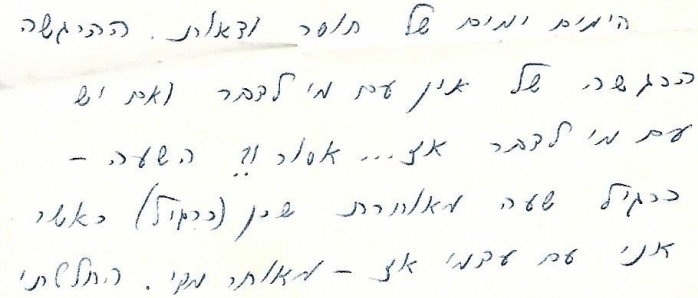 הימים ימים של חוסר ודאות. ההרגשה
הרגשה של אין עם מי לדבר ואם יש
עם מי לדבר אז... אסור !? השעה –
כרגיל שעה מאוחרת שכן (כרגיל) כאשר
אני עם עצמי אז – מאוחר מדי. החלטתי